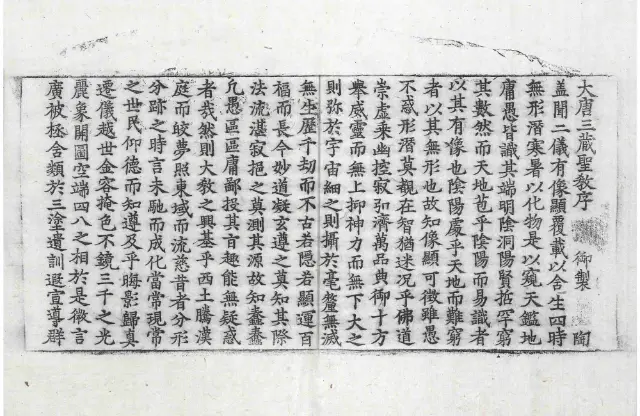 大唐三藏聖教序 御製 陶
盖聞二儀有像顯覆載以含生四時
無形潛寒暑以化物是以窺天鑑地
庸愚皆識其端明陰洞陽賢哲罕窮
其數然而天地苞乎陰陽而易識者
以其有像也陰陽處乎天地而難窮
者以其無形也故知像顯可徵雖愚
不惑形潛莫覩在智猶迷况乎佛道
崇虛乘幽控寂弘濟萬品典御十方
舉威靈而無上抑神力而無下大之
則弥於宇宙細之則攝於毫釐無滅
無生歷千劫而不古若隱若顯運百
福而長今妙道凝玄遵之莫知其際
法流湛寂挹之莫測其源故知蠢蠢
凡愚區區庸鄙投其旨趣能無疑惑
者哉然則大教之興基乎西土騰漢
庭而皎夢照東域而流慈昔者分形
分跡之時言未馳而成化當常現常
之世民仰德而知遵及乎晦影歸真
遷儀越世金容掩色不鏡三千之光
麗象開圖空端四八之相於是微言
廣被拯含類於三塗遺訓遐宣導群